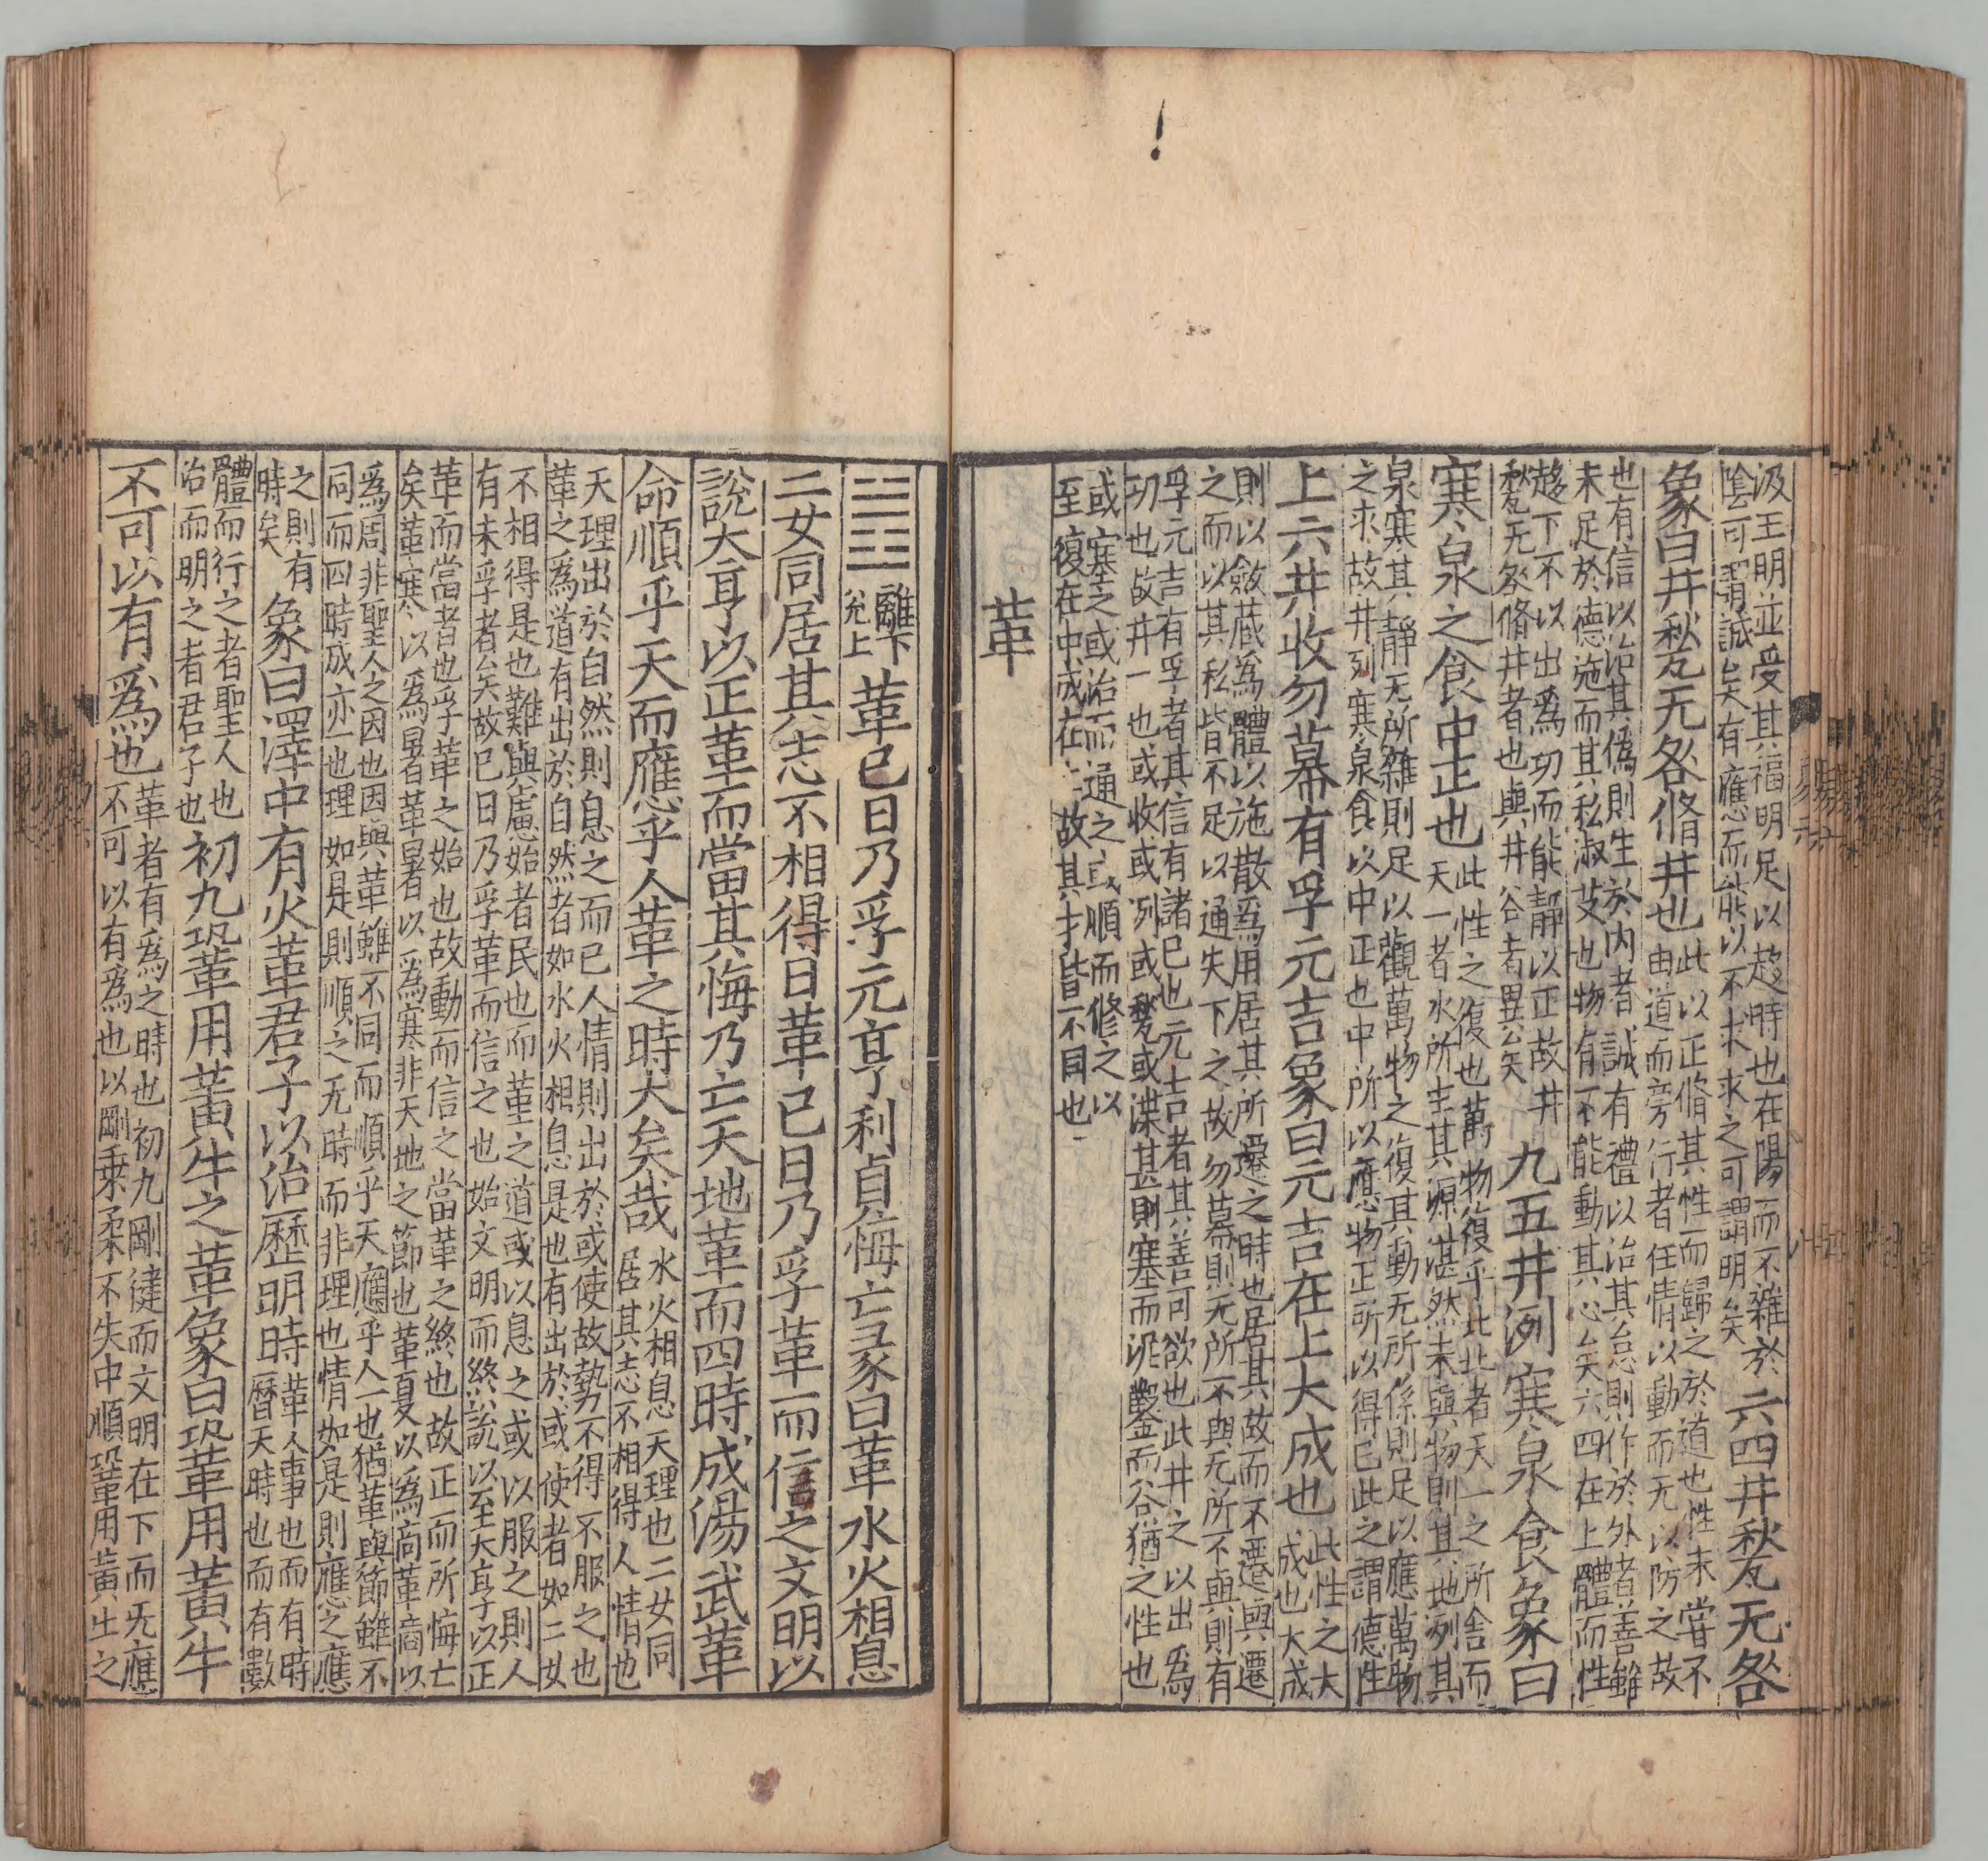 汲王明並受其福明足以趍時也在陽而不雜於
陰可謂誠矣有應而能以不求求之可謂明矣
六四井甃无咎
象曰井甃无咎脩井也
此以正脩其性而歸之於道也性未嘗不
由道而旁行者任情以動而无以防之故
也有信以治其偽則生於内者誠有禮以治其怠則作於外者善雖
未足於德施而其私淑艾也物有不能動其心矣六四在上體而性
趍下不以出爲功而能靜以正故井
甃无咎脩井者也與井谷者異矣
九五井洌寒泉食象曰
寒泉之食中正也
此性之復也萬物復乎此北者天一之所舍而
天一者水所生其源湛然未與物則其地洌其
泉寒其靜无所雜則足以觀萬物之復其動无所係則足以應萬物
之求故井洌寒泉食以中正也中所以應物正所以得已此之謂德性
上六井收勿幕有孚元吉象曰元吉在上大成也
此性之大
成也大成
則以斂藏爲體以施散爲用居其所遷之時也居其故而不遷與遷
之而以其私皆不足以通失下之故勿幕則无所不與无所不與則有
孚元吉有孚者其信有諸已也元吉者其善可欲也此井之以出爲
功也故井一也或收或洌或甃或渫甚則塞而泥鑿而谷猶之性也
或塞之或治而通之或順而修之以
至復在中成在上故其才皆不同也
革
離下
兌上
革已日乃孚元亨利貞悔亡彖曰革水火相息
二女同居其志不相得曰革已日乃孚革而信之文明以
說大亨以正革而當其悔乃亡天地革而四時成湯武革
命順乎天而應乎人革之時大矣哉
水火相息天理也二女同
居其志不相得人情也
天理出於自然則息之而已人情則出於或使故勢不得不服之也
革之爲道有出於自然者如水火相息是也有出於或使者如二女
不相得是也難與慮始者民也而革之道或以息之或以服之則人
有未孚者矣故已日乃孚革而信之也始文明而終說以至大亨以正
革而當者也孚革之始也故動而信之當革之終也故正而所悔亡
矣革寒以爲暑革暑以爲寒非天地之節也革夏以爲商革商以
爲周非聖人之因也因與革雖不同而順乎天應乎人一也猶革與節雖不
同而四時成亦一也理如是則順之无時而非理也情如是則應之應
之則有
時矣
象曰澤中有火革君子以治歷明時
革人事也而有時
曆天時也而有數
體而行之者聖人也
治而明之者君子也
初九鞏革用黃牛之革象曰鞏革用黃牛
不可以有爲也
革者有爲之時也初九剛徤而文明在下而旡應
不可以有爲也以剛乗柔不失中順鞏用黃牛之